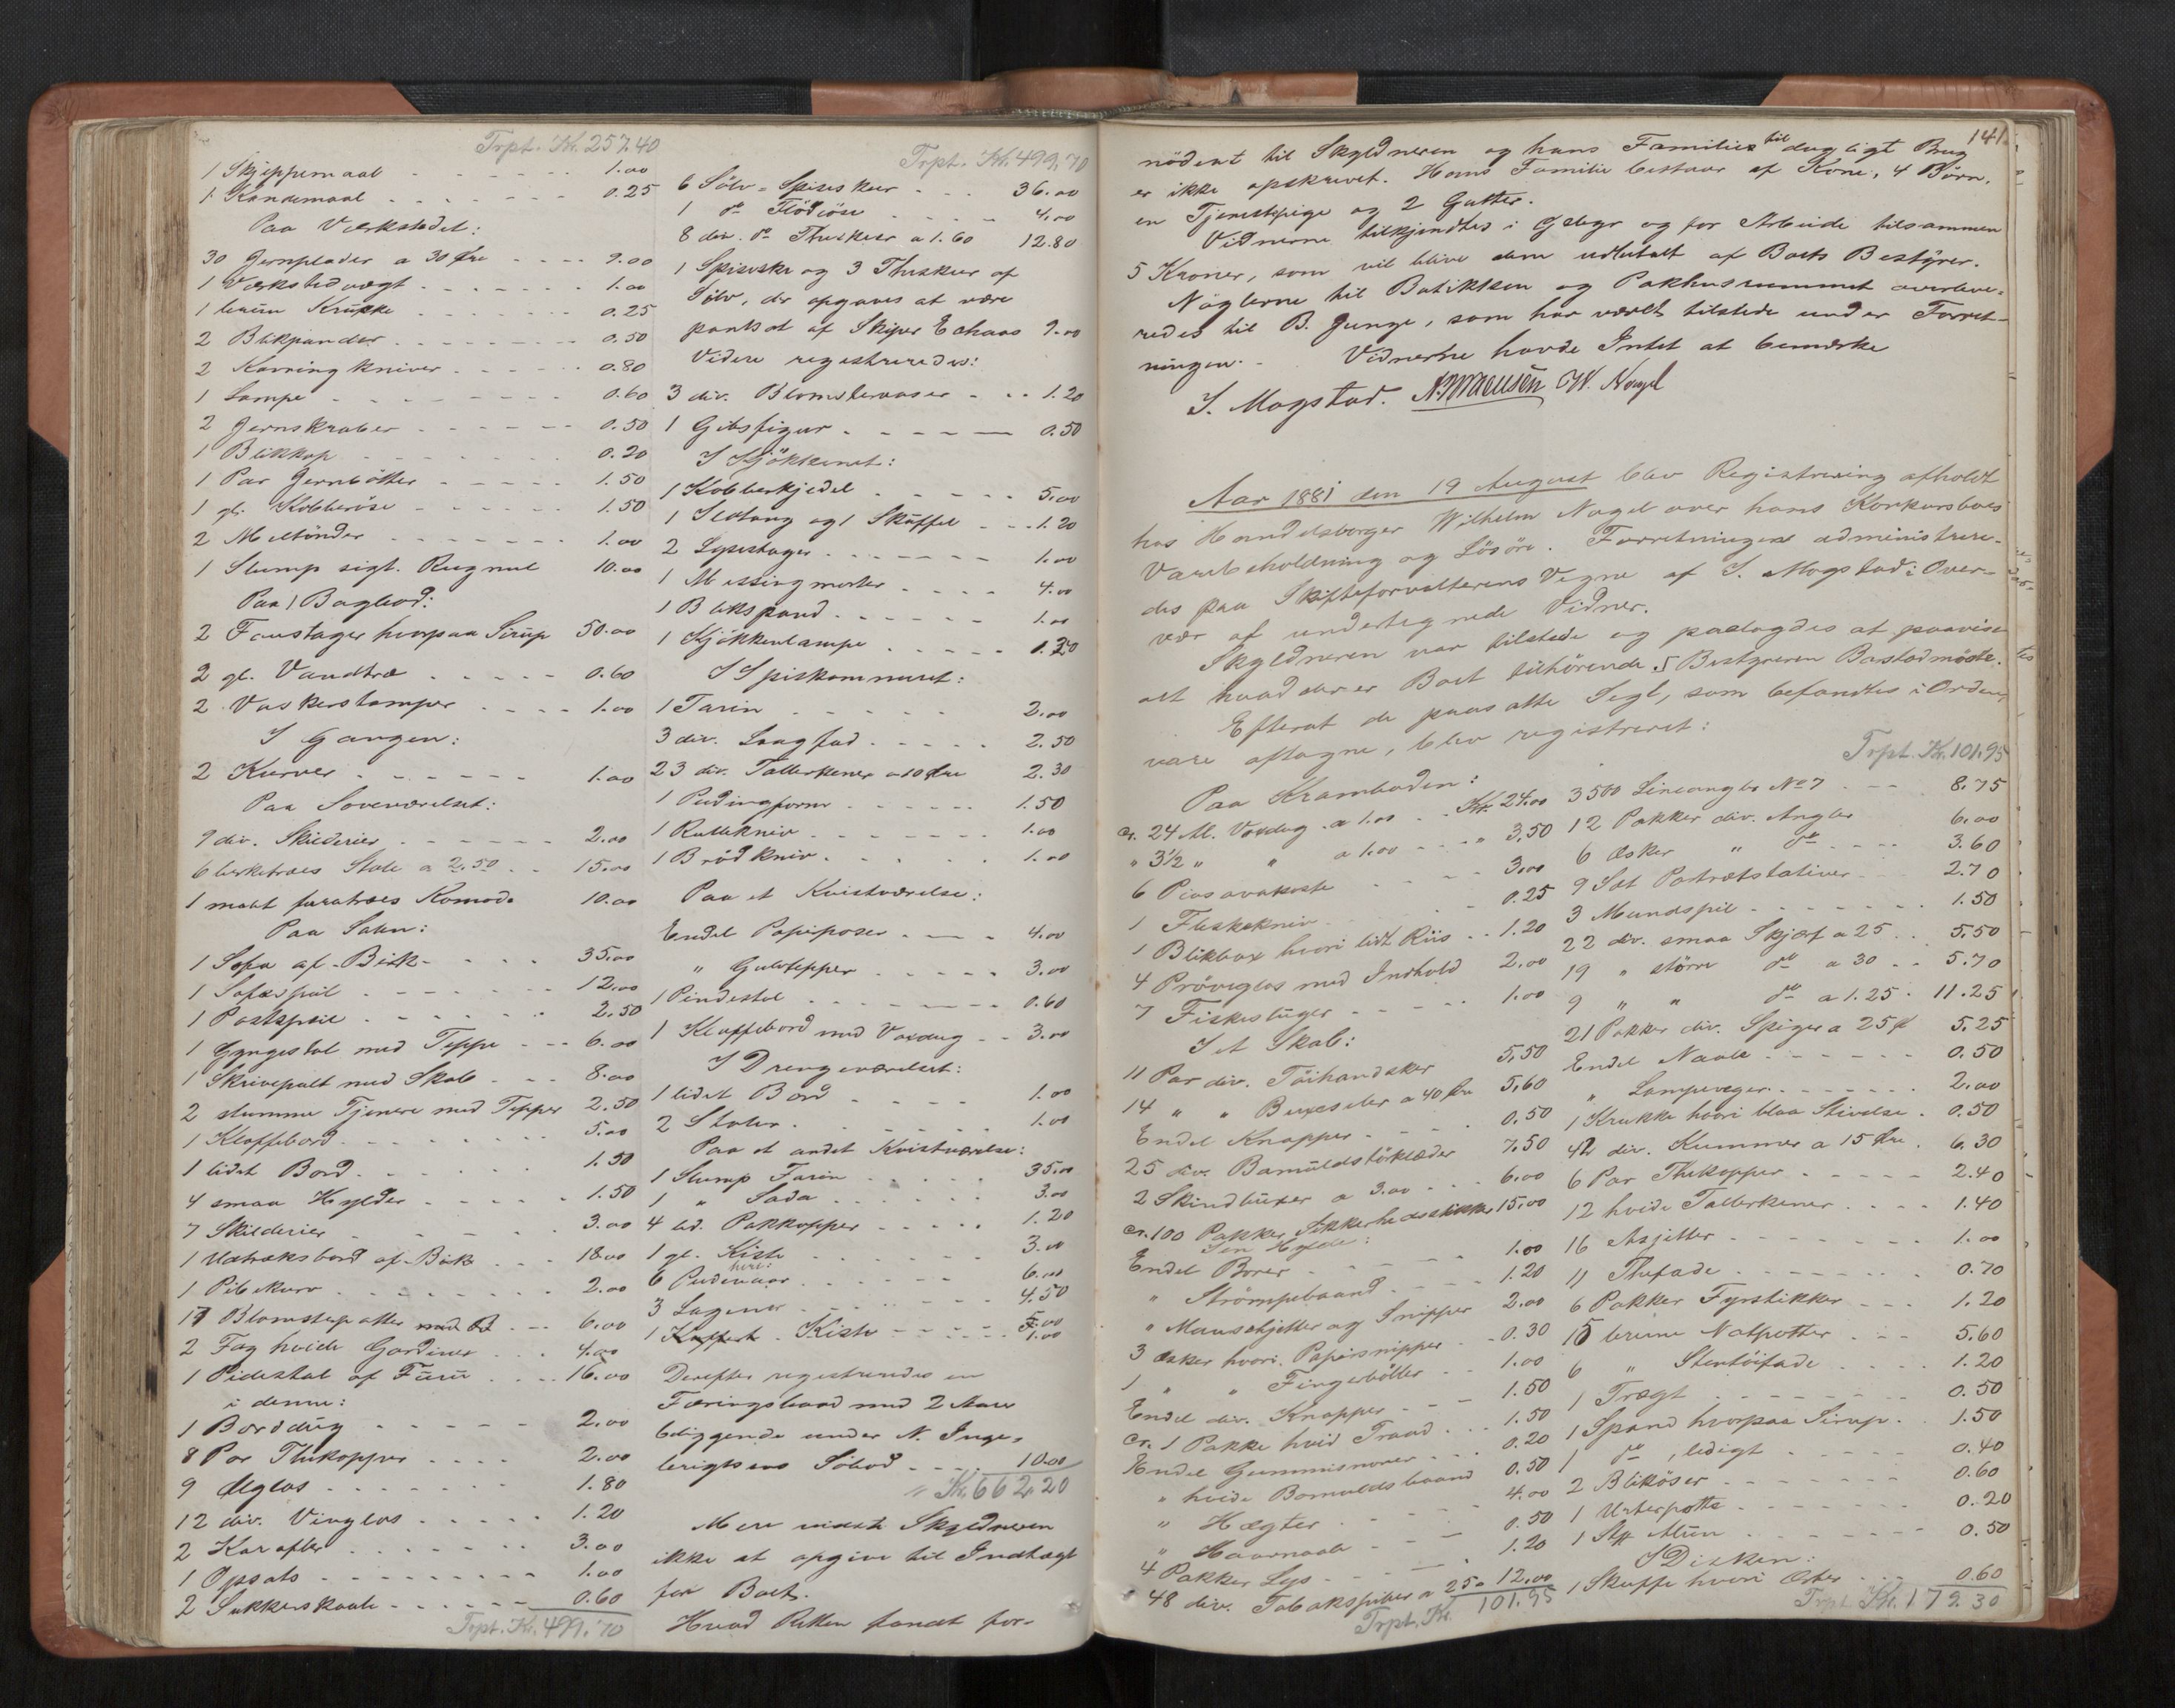 Trpt. Kr. 257.40
1 Skjeppemaal 1.00
1 Kandemaal 0.25
Paa Værkstedet:
30 Jernplader a 30 Øre 9.00
1 Værkstedvægt 1.00
1 leerin Krukke 0.25
2 Blikpander 0.50
2 Kavringkniver 0.80
1 Lampe 0.60
2 Jernskraber 0.50
1 Blikkop 0.20
1 Par Jernbøtter 1.50
1 gl. Kobberøse 1.50
2 Meltønder 1.00
1 Slump sigt. Rugmel 10.00
Paa 1 Bagbod:
2 Foustager hvorpaa Sirup 50.00
2 gl. Vandtræ 0.60
2 Vaskerstamper 1.00
I Gangen:
2 Kurver 1.00
Paa Soveværelset:
9 div. Skilderier 2.00
6 birketræes Stole a 2.50 15.00
1 malt furutræes Komode 10.00
Paa Salen:
1 Sofa af Birk 35.00
1 Sofaspeil 12.00
1 Postspeil 2.50
1 Gyngestol med Teppe 6.00
1 Skrivepult med Skab 8.00
2 stumme Tjenere med Tepper 2.50
1 Klaffebord 5.00
1 lidet Bord 1.50
4 smaa Hylder 1.50
7 Skilderier 3.00
1 Udtræksbord af Birk 18.00
1 Pibekurv 2.00
17 Blomsterpotter med B 6.00
2 Fag hvide Gardiner 4.00
1 Pidestal af Furu 16.00
i denne:
1 Borddug 2.00
8 Par Thekopper 2.00
9 Ølglas 1.80
12 div. Vinglas 1.20
2 Karafler 3.00
1 Opsats 1.00
2 Sukkerskaale 0.60
Trpt. Kr. 499.70
Trpt. Kr. 499.70
6 Sølv-Spiseskeer 36.00
1 do Flødeøse 4.00
8 div. do Theskeer a 1.60 12.80
1 Spiseske og 3 Theskeer af
Sølv, der opgaves at være
pantsat af Skiper Echaas 9.00
Videre registreredes:
3 div. Blomstervaser 1.20
1 Gibsfigur 0.50
I Kjøkkenet:
1 Kobberkjedel 5.00
1 Ildtang og 1 Skuffel 1.20
2 Lysestager 1.00
1 Messingmorter 4.00
1 Blikspand 1.00
1 Kjøkkenlampe 1.20
I Spiskammeret:
1 Tarin 2.00
3 div. Langfad 2.50
23 div. Tallerkener a 10 Øre 2.30
1 Pudingform 1.50
1 Rullekniv 1.00
1 Brødkniv 1.00
Paa et Kvistværelse:
Endel Papirposer 4.00
" Gulvtepper 3.00
1 Pindestol 0.60
1 Klaffebord med Voxdug 3.00
I Drengeværelset:
1 lidet Bord 1.00
2 Stoler 1.00
Paa et andet Kvistværelse:
1 Slump Farin 35.00
1 " Soda 3.00
4 ud. Pakkopper 1.20
1 gl. Kiste 3.00
heri:
6 Pudevaar 6.00
3 Lagener 4.50
1 Kuffert 5.00
Kiste 1.00
Derefter registreredes en
Færingsbaad med 2 Aarer
beliggende under N. Inge-
brigtsens Søbod 10.00
Kr. 662.20
Mere vidste Skyldneren
ikke at opgive til Indtægt
for Boet.
Hvad Retten fandt for-
141.
nødent til Skyldneren og hans Families til dagligt Brug
er ikke opskrevet. Hans Familie bestaar af Kone, 4 Børn,
en Tjenestpige og 2 Gutter.
Vidnerne tilkjendtes i Gebyr og for Arbeide tilsammen
5 Kroner, som vil blive dem udbetalt af Boets Bestyrer.
Nøglerne til Butikken og Pakhusrummet overleve-
redes til B. Junge, som har været tilstede under Forret-
ningen. Vidnerne havde Intet at bemærke
I. Mogstad. W. Nagel
Aar 1881 den 19 August blev Registrering afholdt
hos Handelsborger Wilhelm Nagel over hans Konkursboes
Varebeholdning og Løsøre. Forretningen administrere-
des paa Skifteforvalterens Vegne af I. Mogstad i Over-
vær af undertegnede Vidner.
Skyldneren var tilstede og paalagdes at paavise
alt hvad der er Boet tilhørende. § Bestyreren Bastad mødte.
Efterat de paasatte Segl, som befandtes i Orden,
vare aftagne, blev registreret:
Paa Kramboden:
cr. 24 Al. Voxdug a 1.00 Kr. 24.00
" 3½ " " a 1.00 " 3,50
6 Piasavakoste 3.00
1 Fleskekniv 0.25
1 Blikbox hvori lidt Riis 1.20
4 Prøveglas med Indhold 2.00
7 Fiskestuger 1.00
I et Skab:
11 Par div. Tøihandsker 5,50
14 " " Buxeseler a 40 Øre 5,60
Endel Knapper 0.50
25 div. Bomuldstørklæder 7.50
2 Skindbuxer a 3.00 6.00
cr. 100 Pakker Sikkerhedsstikker 15.00
I en Hylde:
Endel Borer 1.00
" Strømpebaand 1.20
" Manschjetter og Snipper 2.00
3 Æsker hvori Papirsnipper 0.30
1 " " Fingerbøller 1.00
Endel div. Knapper 1.50
cr. 1 Pakke hvid Traad 1.50
Endel Gummisnorer 0.20
" hvide Bomuldsbaand 0.50
" Hægter 4.00
" Haarnaale 0.50
4 Pakker Lys 1.20
48 div. Tobakspiber a 25 12.00
Trpt. Kr. 101.95
Trpt. Kr. 101.95
3500 Lineangler No 7 8.75
12 Pakker div. Angler 6.00
6 Æsker " do 3.60
9 Sæt Portrætstativer 2.70
3 Mundspil 1.50
22 div. smaa Skjærf a 25 5.50
19 " større do a 30 5.70
9 " " do a 1.25 11.25
21 Pakker div. Spiger a 25 Ø 5.25
Endel Naale 0.50
" Lampeveger 2.00
1 Krukke hvori blaa Stivelse 0.50
42 div. Kummer a 15 Øre 6.30
6 Par Thekopper 2.40
12 hvide Tallerkener 1.40
16 Asjetter 1.00
11 Thefade 0.70
6 Pakker Fyrstikker 1.20
15 lerine Natpotter 5.60
6 " Stentøifade 1.20
1 Tragt 0.50
1 Spand hvorpaa Sirup 1.50
1 do, ledigt 0.40
2 Blikøser 0.60
1 Urterpotte 0.20
1 St Alun 0.50
I Disken:
1 Skuffe hvori Erter 0.60
Trpt. Kr. 179.30